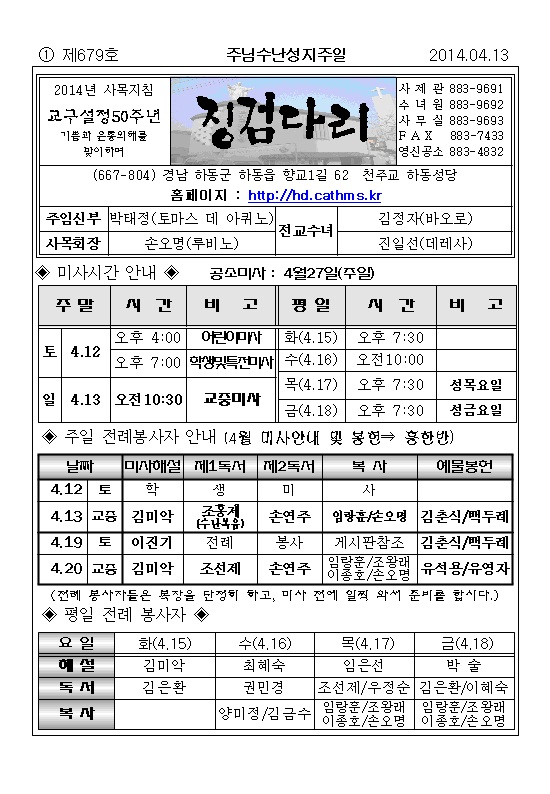 ① 제679호 주님수난성지주일 2014.04.13
2014년 사목지침
교구설정50주년
기쁨과 은총의해를
맞이하며
징검다리
사 제 관 883-9691
수 녀 원 883-9692
사 무 실 883-9693
F A X 883-7433
영신공소 883-4832
(667-804) 경남 하동군 하동읍 향교1길 62 천주교 하동성당
홈페이지 : http://hd.cathms.kr
주임신부 박태정(토마스 데 아퀴노) 전교수녀 김정자(바오로)
사목회장 손오명(루비노) 진일선(데레사)
◈ 미사시간 안내 ◈ 공소미사 : 4월27일(주일)
주 말 시 간 비 고 평 일 시 간 비 고
토 4.12 오후 4:00 어린이미사 화(4.15) 오후 7:30
오후 7:00 학생및특전미사 수(4.16) 오전10:00
일 4.13 오전10:30 교중미사 목(4.17) 오후 7:30 성목요일
금(4.18) 오후 7:30 성금요일
◈ 주일 전례봉사자 안내 (4월 미사안내 및 봉헌⇒ 흥한반)
날짜 미사해설 제1독서 제2독서 복 사 예물봉헌
4.12 토 학 생 미 사
4.13 교중 김미악 조홍제 (수난복음) 손연주 임랑훈/손오명 김춘식/빽두례
4.19 토 이진기 전례 봉사 게시판참조 김춘식/빽두례
4.20 교중 김미악 조선제 손연주 임랑훈/조왕래 이종호/손오명 유석용/유영자
(전례 봉사자들은 복장을 단정히 하고, 미사 전에 일찍 와서 준비를 합시다.)
◈ 평일 전례 봉사자 ◈
요 일 화(4.15) 수(4.16) 목(4.17) 금(4.18)
해 설 김미악 최혜숙 임은선 박 술
독 서 김은환 권민경 조선제/우정순 김은환/이혜숙
복 사 양미정/김금수 임랑훈/조왕래 이종호/손오명 임랑훈/조왕래 이종호/손오명